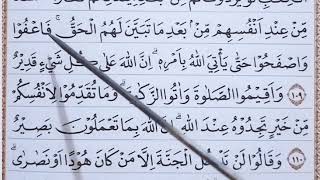 مِنْ عِنْدِ اَنْفُسِهِمْ مِنْۢ بَعْدِ مَا تَبَيَّنَ لَهُمُ الْحَقُّ ۚ فَاعْفُوْا
وَاصْفَحُوْا حَتّٰى يَأْتِيَ اللّٰهُ بِاَمْرِهٖ ۗ اِنَّ اللّٰهَ عَلٰى كُلِّ شَيْءٍ قَدِيْرٌ
١٠٩ وَاَقِيْمُوا الصَّلٰوةَ وَاٰتُوا الزَّكٰوةَ ۗ وَمَا تُقَدِّمُوْا لِاَنْفُسِكُمْ
مِنْ خَيْرٍ تَجِدُوْهُ عِنْدَ اللّٰهِ ۗ اِنَّ اللّٰهَ بِمَا تَعْمَلُوْنَ بَصِيْرٌ
١١٠ وَقَالُوْا لَنْ يَدْخُلَ الْجَنَّةَ اِلَّا مَنْ كَانَ هُوْدًا اَوْ نَصٰرٰى ۗ